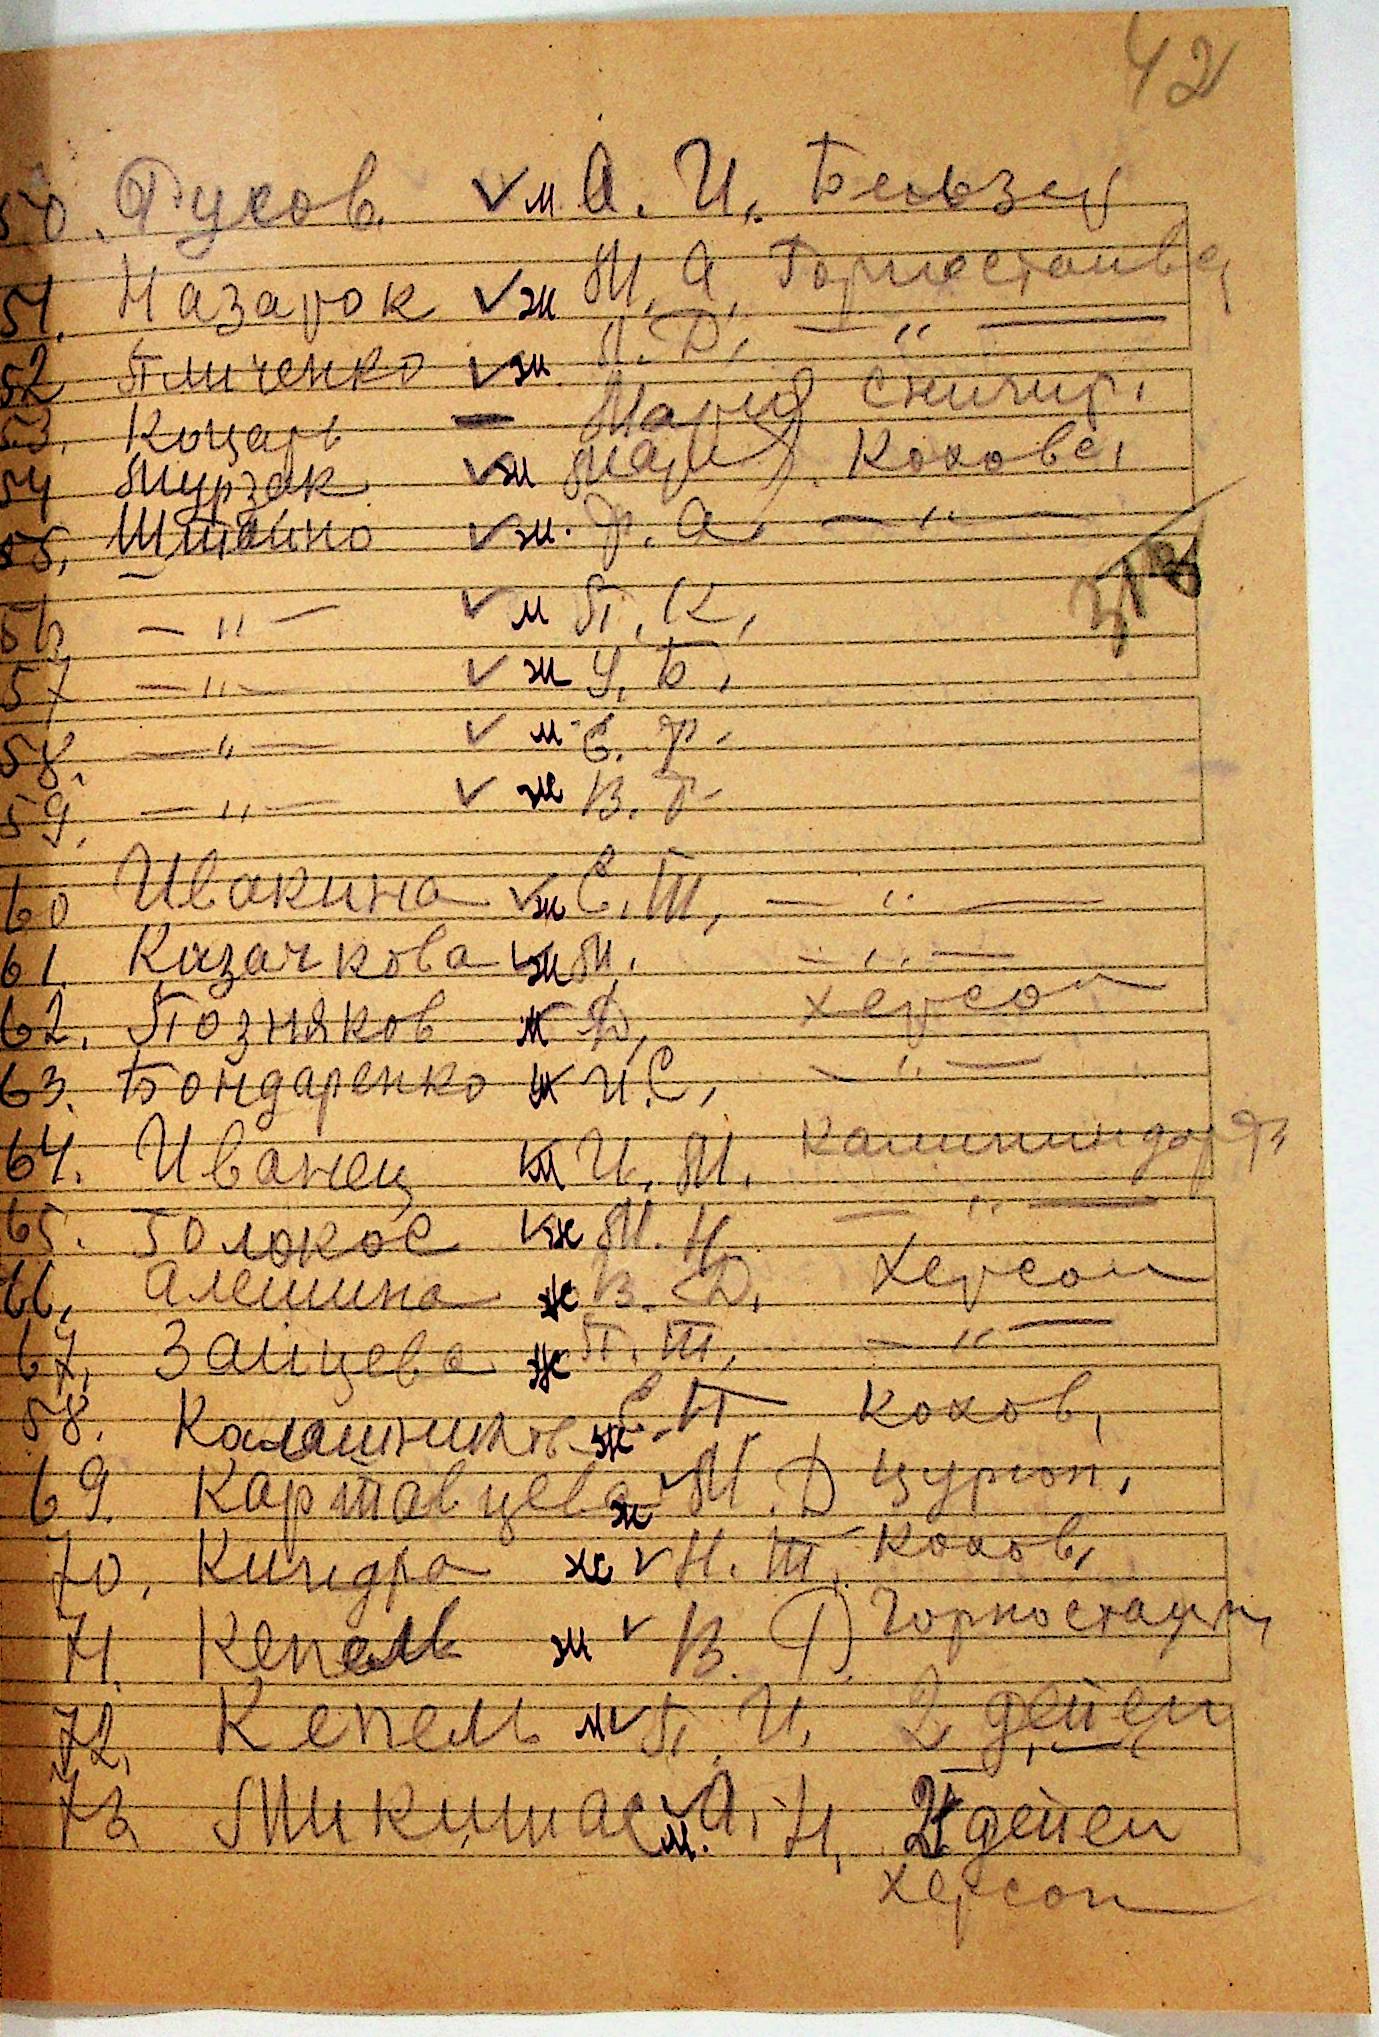 42
50. Гусов. ✓ м А. И. Бельзер
51. Назарок ✓ ж М. А. Горностаивка
52 Пличенко ✓ ж П. Д. — „ —
53. Коцарь — Мария Снигир.
54 Мурзак ✓ ж Мария Кахове.
55. Штайно ✓ ж. Ф. А. — „ —
56. — „ — ✓ м П. К.
57 — „ — ✓ ж У. Б.
58. — „ — ✓ м Е. Ф.
59. — „ — ✓ ж В. Г.
60 Ивакина ✓ ж Е. Т. — „ —
61. Казачкова ✓ ж М. — „ —
62. Позняков м Д. Херсон
63. Бондаренко м И. С. — „ —
64. Иванец м И. М. Калининдорф
65. Голокос ✓ ж М. Н. — „ —
66. Алешина ж В. Д. Херсон
67. Зайцева ж П. Т. — „ —
58. Калашников ж Е. П Кахов.
69. Картавцева ж ✓ М. Д Цурюп.
70. Киндра ж ✓ Н. Т. Кахов.
71. Кепель ж ✓ В. Ф. Горностаип.
72. Кепель м ✓ Г. И. 2 детей
73. Микитас ✓ м. А. Н. 2 детей
Херсон